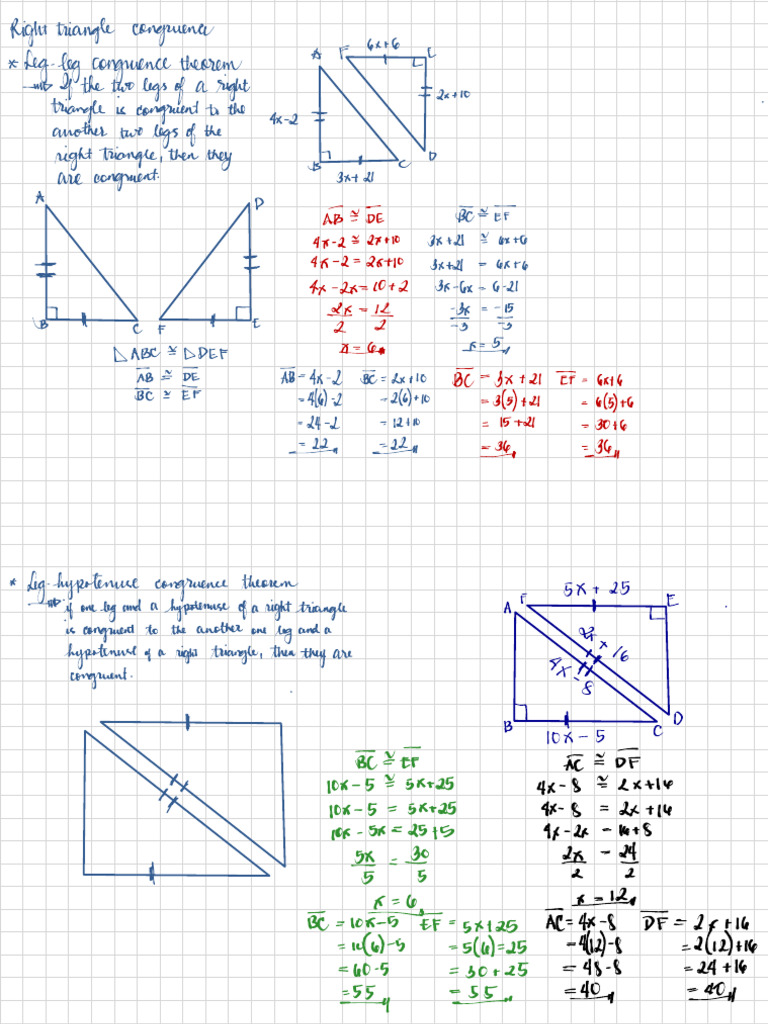 Right triangle congruence
* Leg-leg congruence theorem
If the two legs of a right
triangle is congruent to the
another two legs of the
right triangle, then they
are congruent.
A F 6x+6 E
4x-2 2x+10
B 3x+21 C D
A D
B C F E
△ABC ≅ △DEF
AB ≅ DE
BC ≅ EF
AB ≅ DE
4x-2 ≅ 2x+10
4x-2 = 2x+10
4x-2x = 10+2
2x = 12
2 2
x = 6
BC ≅ EF
3x+21 ≅ 6x+6
3x+21 = 6x+6
3x-6x = 6-21
-3x = -15
-3 -3
x = 5
AB = 4x-2
= 4(6)-2
= 24-2
= 22
BC = 2x+10
= 2(6)+10
= 12+10
= 22
BC = 3x+21
= 3(5)+21
= 15+21
= 36
EF = 6x+6
= 6(5)+6
= 30+6
= 36
* Leg-hypotenuse congruence theorem
if one leg and a hypotenuse of a right triangle
is congruent to the another one leg and a
hypotenuse of a right triangle, then they are
congruent.
5x+25
A F E
2x+16
4x-8
B 10x-5 C D
BC ≅ EF
10x-5 ≅ 5x+25
10x-5 = 5x+25
10x-5x = 25+5
5x = 30
5 5
x = 6
AC ≅ DF
4x-8 ≅ 2x+16
4x-8 = 2x+16
4x-2x = 16+8
2x = 24
2 2
x = 12
BC = 10x-5
= 10(6)-5
= 60-5
= 55
EF = 5x+25
= 5(6)=25
= 30+25
= 55
AC = 4x-8
= 4(12)-8
= 48-8
= 40
DF = 2x+16
= 2(12)+16
= 24+16
= 40